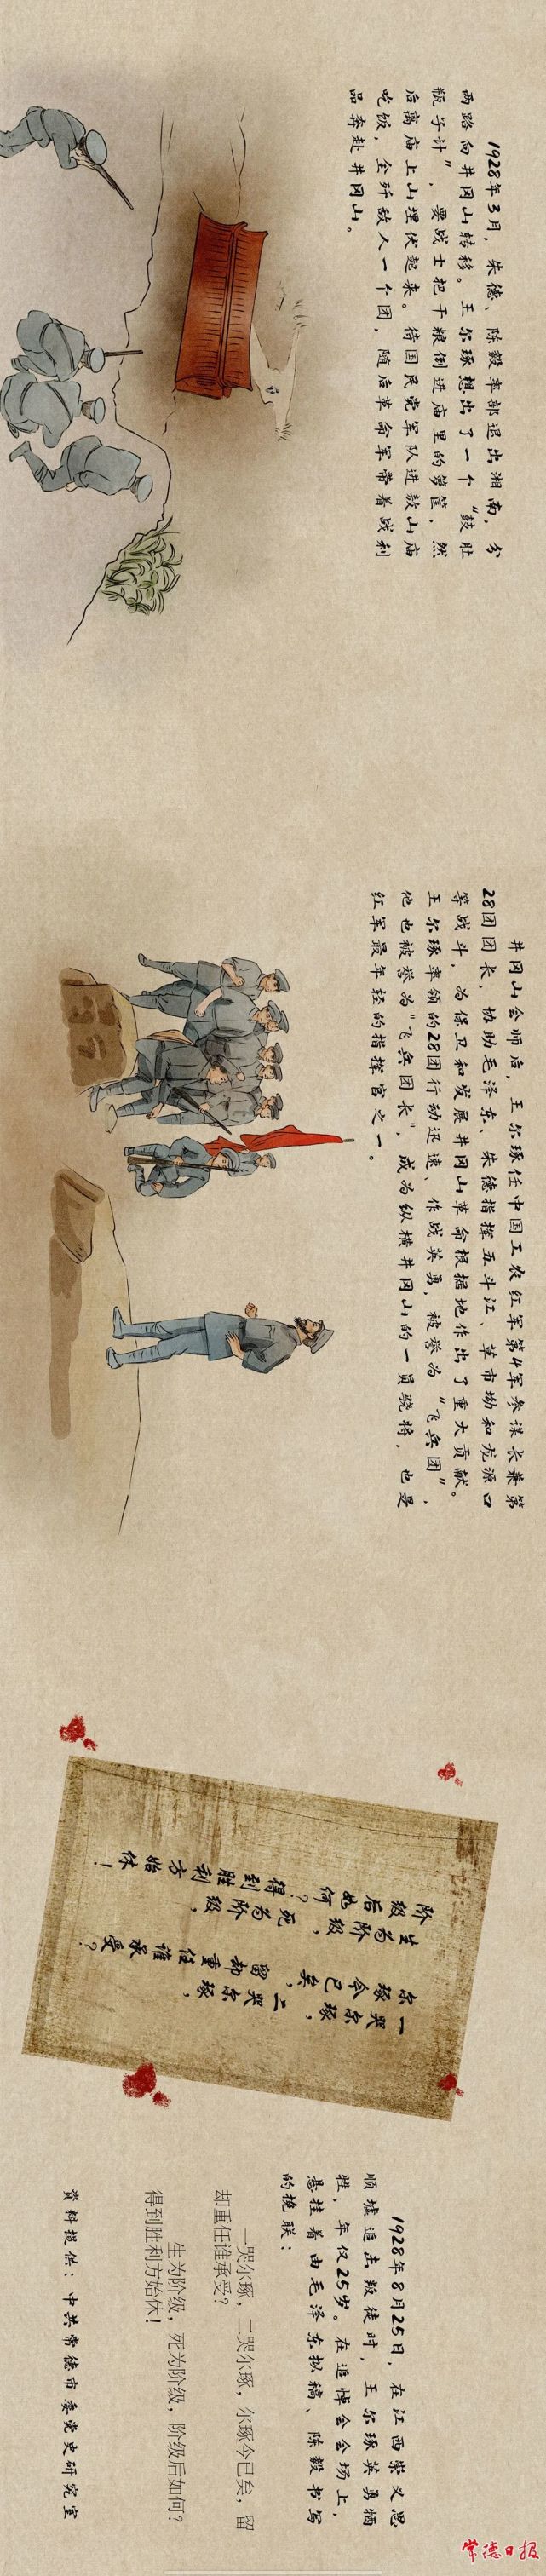 1928年3月，朱德、陈毅率部退出湘南，分
两路向井冈山转移。王尔琢想出了一个“鼓肚
瓶子计”，要战士把干粮倒进庙里的箩筐，然
后离庙上山埋伏起来。待国民党军队进鼓山庙
吃饭，全歼敌人一个团，随后革命军带着战利
品奔赴井冈山。
井冈山会师后，王尔琢任中国工农红军第4军参谋长兼第
28团团长，协助毛泽东、朱德指挥五斗江、草市坳和龙源口
等战斗，为保卫和发展井冈山革命根据地作出了重大贡献。
王尔琢率领的28团行动迅速、作战英勇，被誉为“飞兵团”，
他也被誉为“飞兵团长”，成为纵横井冈山的一员骁将，也是
红军最年轻的指挥官之一。
一哭尔琢，二哭尔琢，
尔琢今已矣，留却重任谁承受？
生为阶级，死为阶级，
阶级后如何？得到胜利方始休！
1928年8月25日，在江西崇义思
顺墟追击叛徒时，王尔琢英勇牺
牲，年仅25岁。在追悼会会场上，
悬挂着由毛泽东拟稿、陈毅书写
的挽联：
一哭尔琢，二哭尔琢，尔琢今已矣，留
却重任谁承受？
生为阶级，死为阶级，阶级后如何？
得到胜利方始休！
资料提供：中共常德市委党史研究室
常德日报